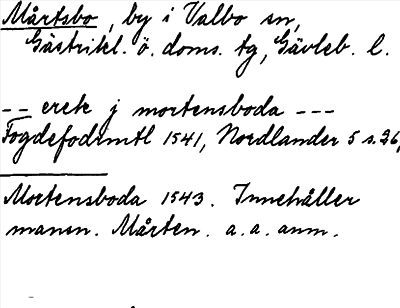 Mårtsbo, by i Valbo sn,
Gästrikl. ö. doms. tg, Gävleb. l.
-- erek j mortensboda ---
Fogdefodrmtl 1541, Nordlander 5 s. 26,
Mortensboda 1543. Innehåller
mansn. Mårten. a. a. anm.